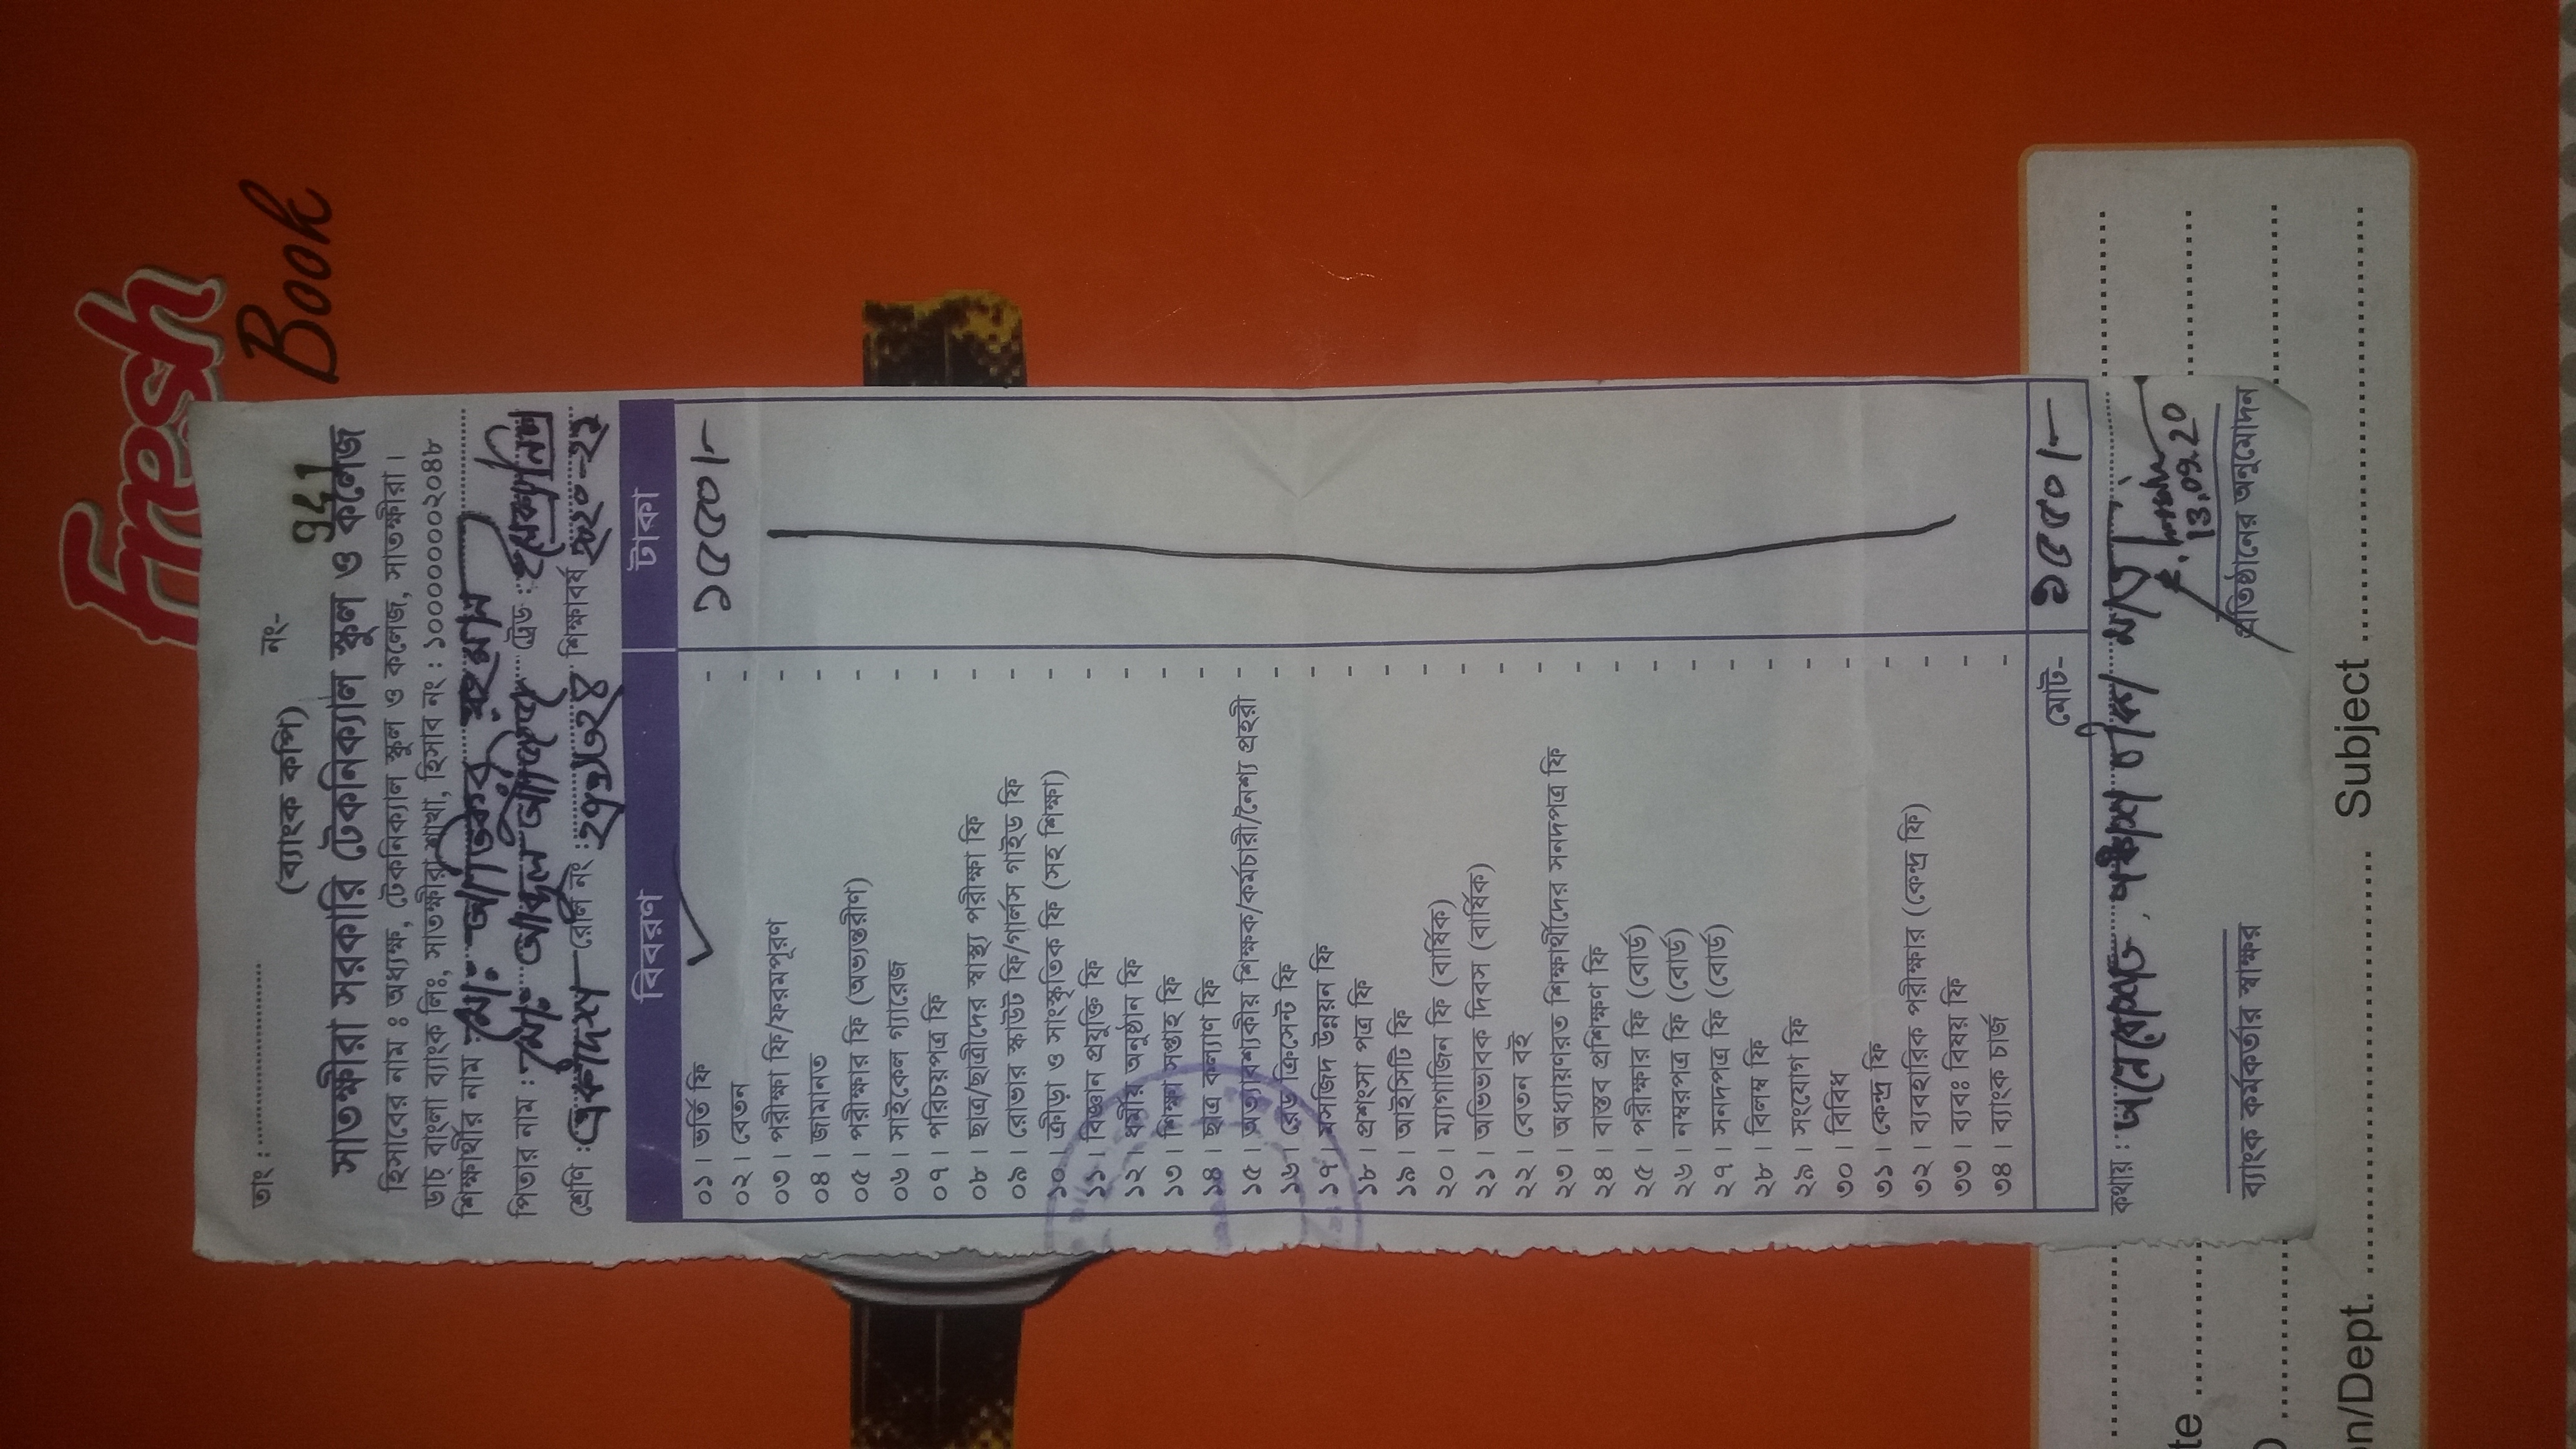 Fresh
Book
তাং :
নং-
(ব্যাংক কপি)
941
সাতক্ষীরা সরকারি টেকনিক্যাল স্কুল ও কলেজ
হিসাবের নাম ঃ অধ্যক্ষ, টেকনিক্যাল স্কুল ও কলেজ, সাতক্ষীরা।
ডাচ্ বাংলা ব্যাংক লিঃ, সাতক্ষীরা শাখা, হিসাব নং : ১০০০০০০০২০৪৮
শিক্ষার্থীর নাম : মোঃ আতিকুর রহমান
পিতার নাম : মোঃ আব্দুল আজিজ ট্রেড :
শ্রেণি : একাদশ রোল নং : শিক্ষাবর্ষ ২০২০-২১
বিবরণ টাকা
০১। ভর্তি ফি - ১৫৫০/-
০২। বেতন -
০৩। পরীক্ষা ফি/ফরমপূরণ -
০৪। জামানত -
০৫। পরীক্ষার ফি (অভ্যন্তরীণ) -
০৬। সাইকেল গ্যারেজ -
০৭। পরিচয়পত্র ফি -
০৮। ছাত্র/ছাত্রীদের স্বাস্থ্য পরীক্ষা ফি -
০৯। রোভার স্কাউট ফি/গার্লস গাইড ফি -
১০। ক্রীড়া ও সাংস্কৃতিক ফি (সহ শিক্ষা) -
১১। বিজ্ঞান প্রযুক্তি ফি -
১২। ধর্মীয় অনুষ্ঠান ফি -
১৩। শিক্ষা সপ্তাহ ফি -
১৪। ছাত্র কল্যাণ ফি -
১৫। অত্যাবশ্যকীয় শিক্ষক/কর্মচারী/নৈশ্য প্রহরী -
১৬। রেড ক্রিসেন্ট ফি -
১৭। মসজিদ উন্নয়ন ফি -
১৮। প্রশংসা পত্র ফি -
১৯। আইসিটি ফি -
২০। ম্যাগাজিন ফি (বার্ষিক) -
২১। অভিভাবক দিবস (বার্ষিক) -
২২। বেতন বই -
২৩। অধ্যায়ণরত শিক্ষার্থীদের সনদপত্র ফি -
২৪। বাস্তব প্রশিক্ষণ ফি -
২৫। পরীক্ষার ফি (বোর্ড) -
২৬। নম্বরপত্র ফি (বোর্ড) -
২৭। সনদপত্র ফি (বোর্ড) -
২৮। বিলম্ব ফি -
২৯। সংযোগ ফি -
৩০। বিবিধ -
৩১। কেন্দ্র ফি -
৩২। ব্যবহারিক পরীক্ষার (কেন্দ্র ফি) -
৩৩। ব্যবঃ বিষয় ফি -
৩৪। ব্যাংক চার্জ -
মোট- ১৫৫০/-
কথায় : পঞ্চাশ টাকা মাত্র
13.09.20
ব্যাংক কর্মকর্তার স্বাক্ষর প্রতিষ্ঠানের অনুমোদন
Subject